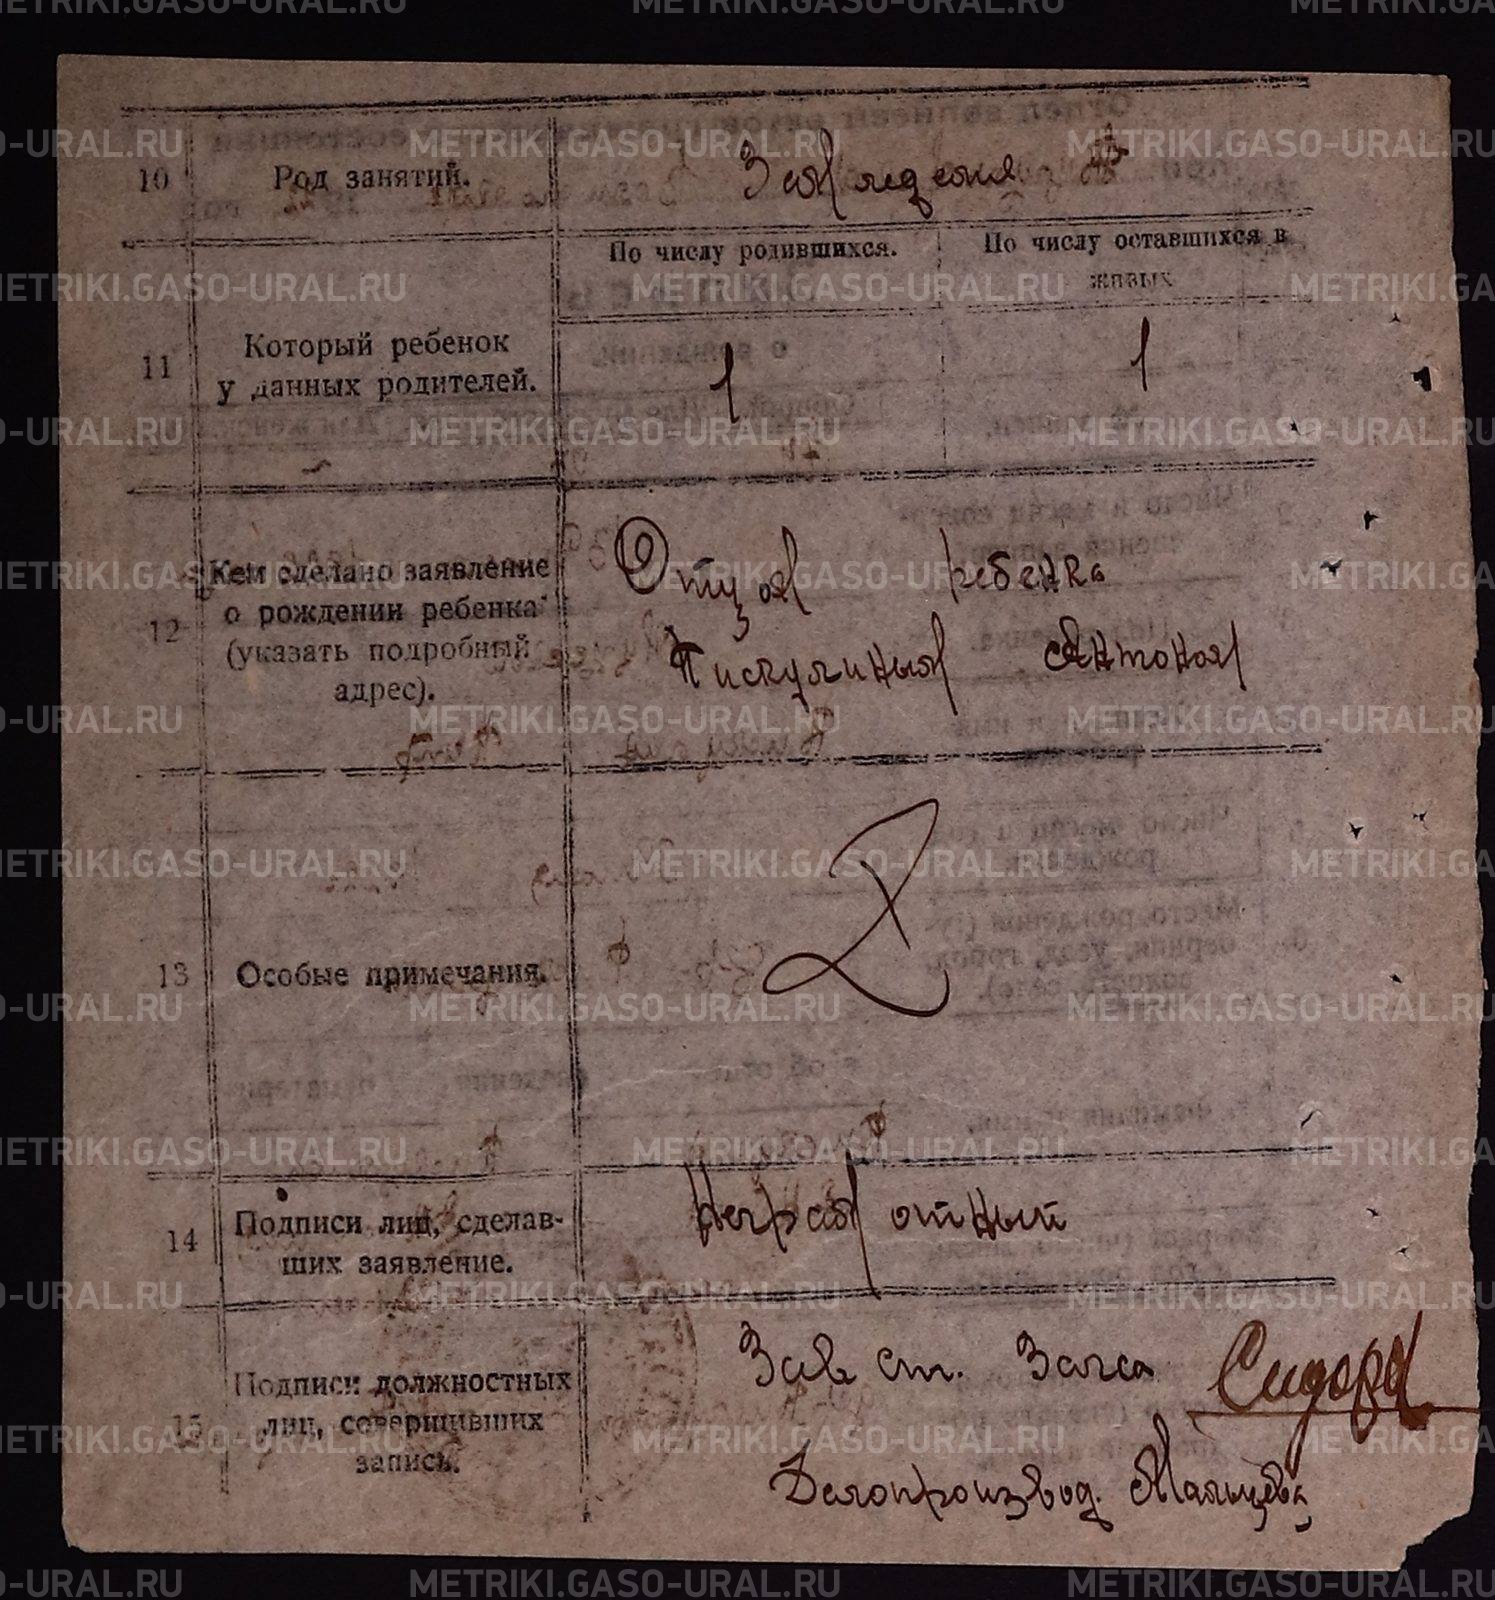 10 Род занятий. Земледелия
11 Который ребенок у данных родителей.
По числу родившихся.
По числу оставшихся в живых
1
1
12 Кем сделано заявление
о рождении ребенка
(указать подробный
адрес).
Отцом ребенка
Пискулиным Антоном
13 Особые примечания.
14 Подписи лиц, сделав-
ших заявление.
Неграмотный
15 Подписи должностных
лиц, совершивших
запись.
Зав ст. Загса
Делопроизвод. Мальцева
METRIKI.GASO-URAL.RU